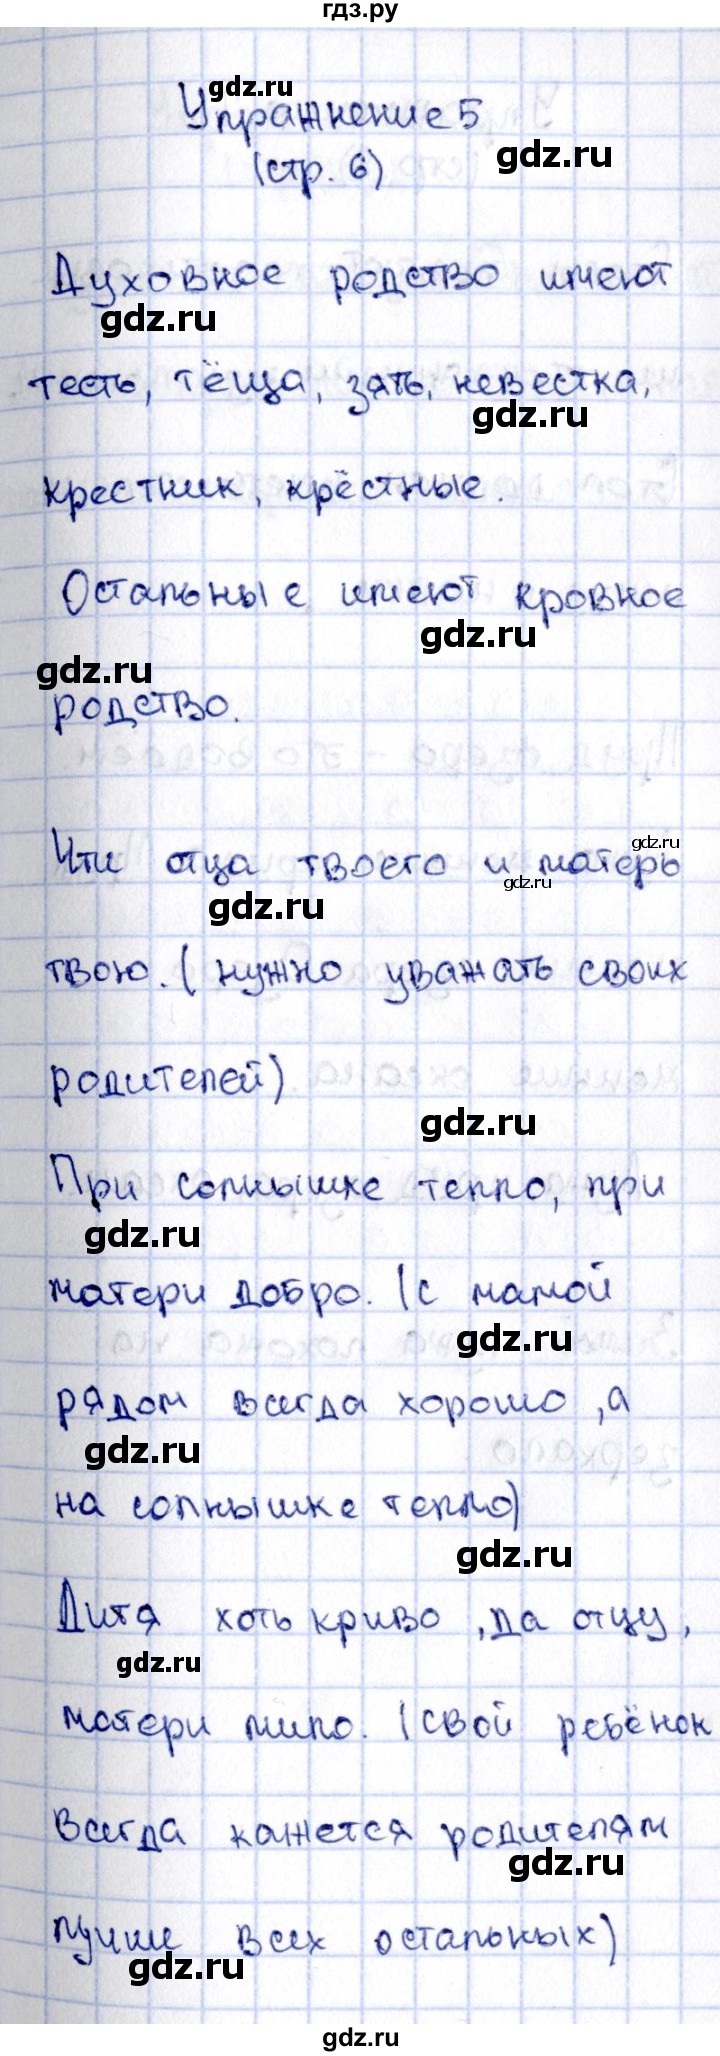 гдз.ру
gdz.ru
Упражнение 5
gdz.ru
(стр. 6)
Духовное родство имеют
gdz.ru
тесть, тёща, зять, невестка,
gdz.ru
крестник, крёстные.
Остальные имеют кровное
gdz.ru
gdz.ru
родство.
gdz.ru
Чти отца твоего и матерь
gdz.ru
gdz.ru
твою. (нужно уважать своих
родителей)
gdz.ru
При солнышке тепло, при
gdz.ru
матери добро. (с мамой
gdz.ru
рядом всегда хорошо, а
gdz.ru
на солнышке тепло)
gdz.ru
Дитя хоть криво, да отцу,
gdz.ru
матери мило. (свой ребёнок
всегда кажется родителям
gdz.ru
лучше всех остальных)
gdz.ru
gdz.ru